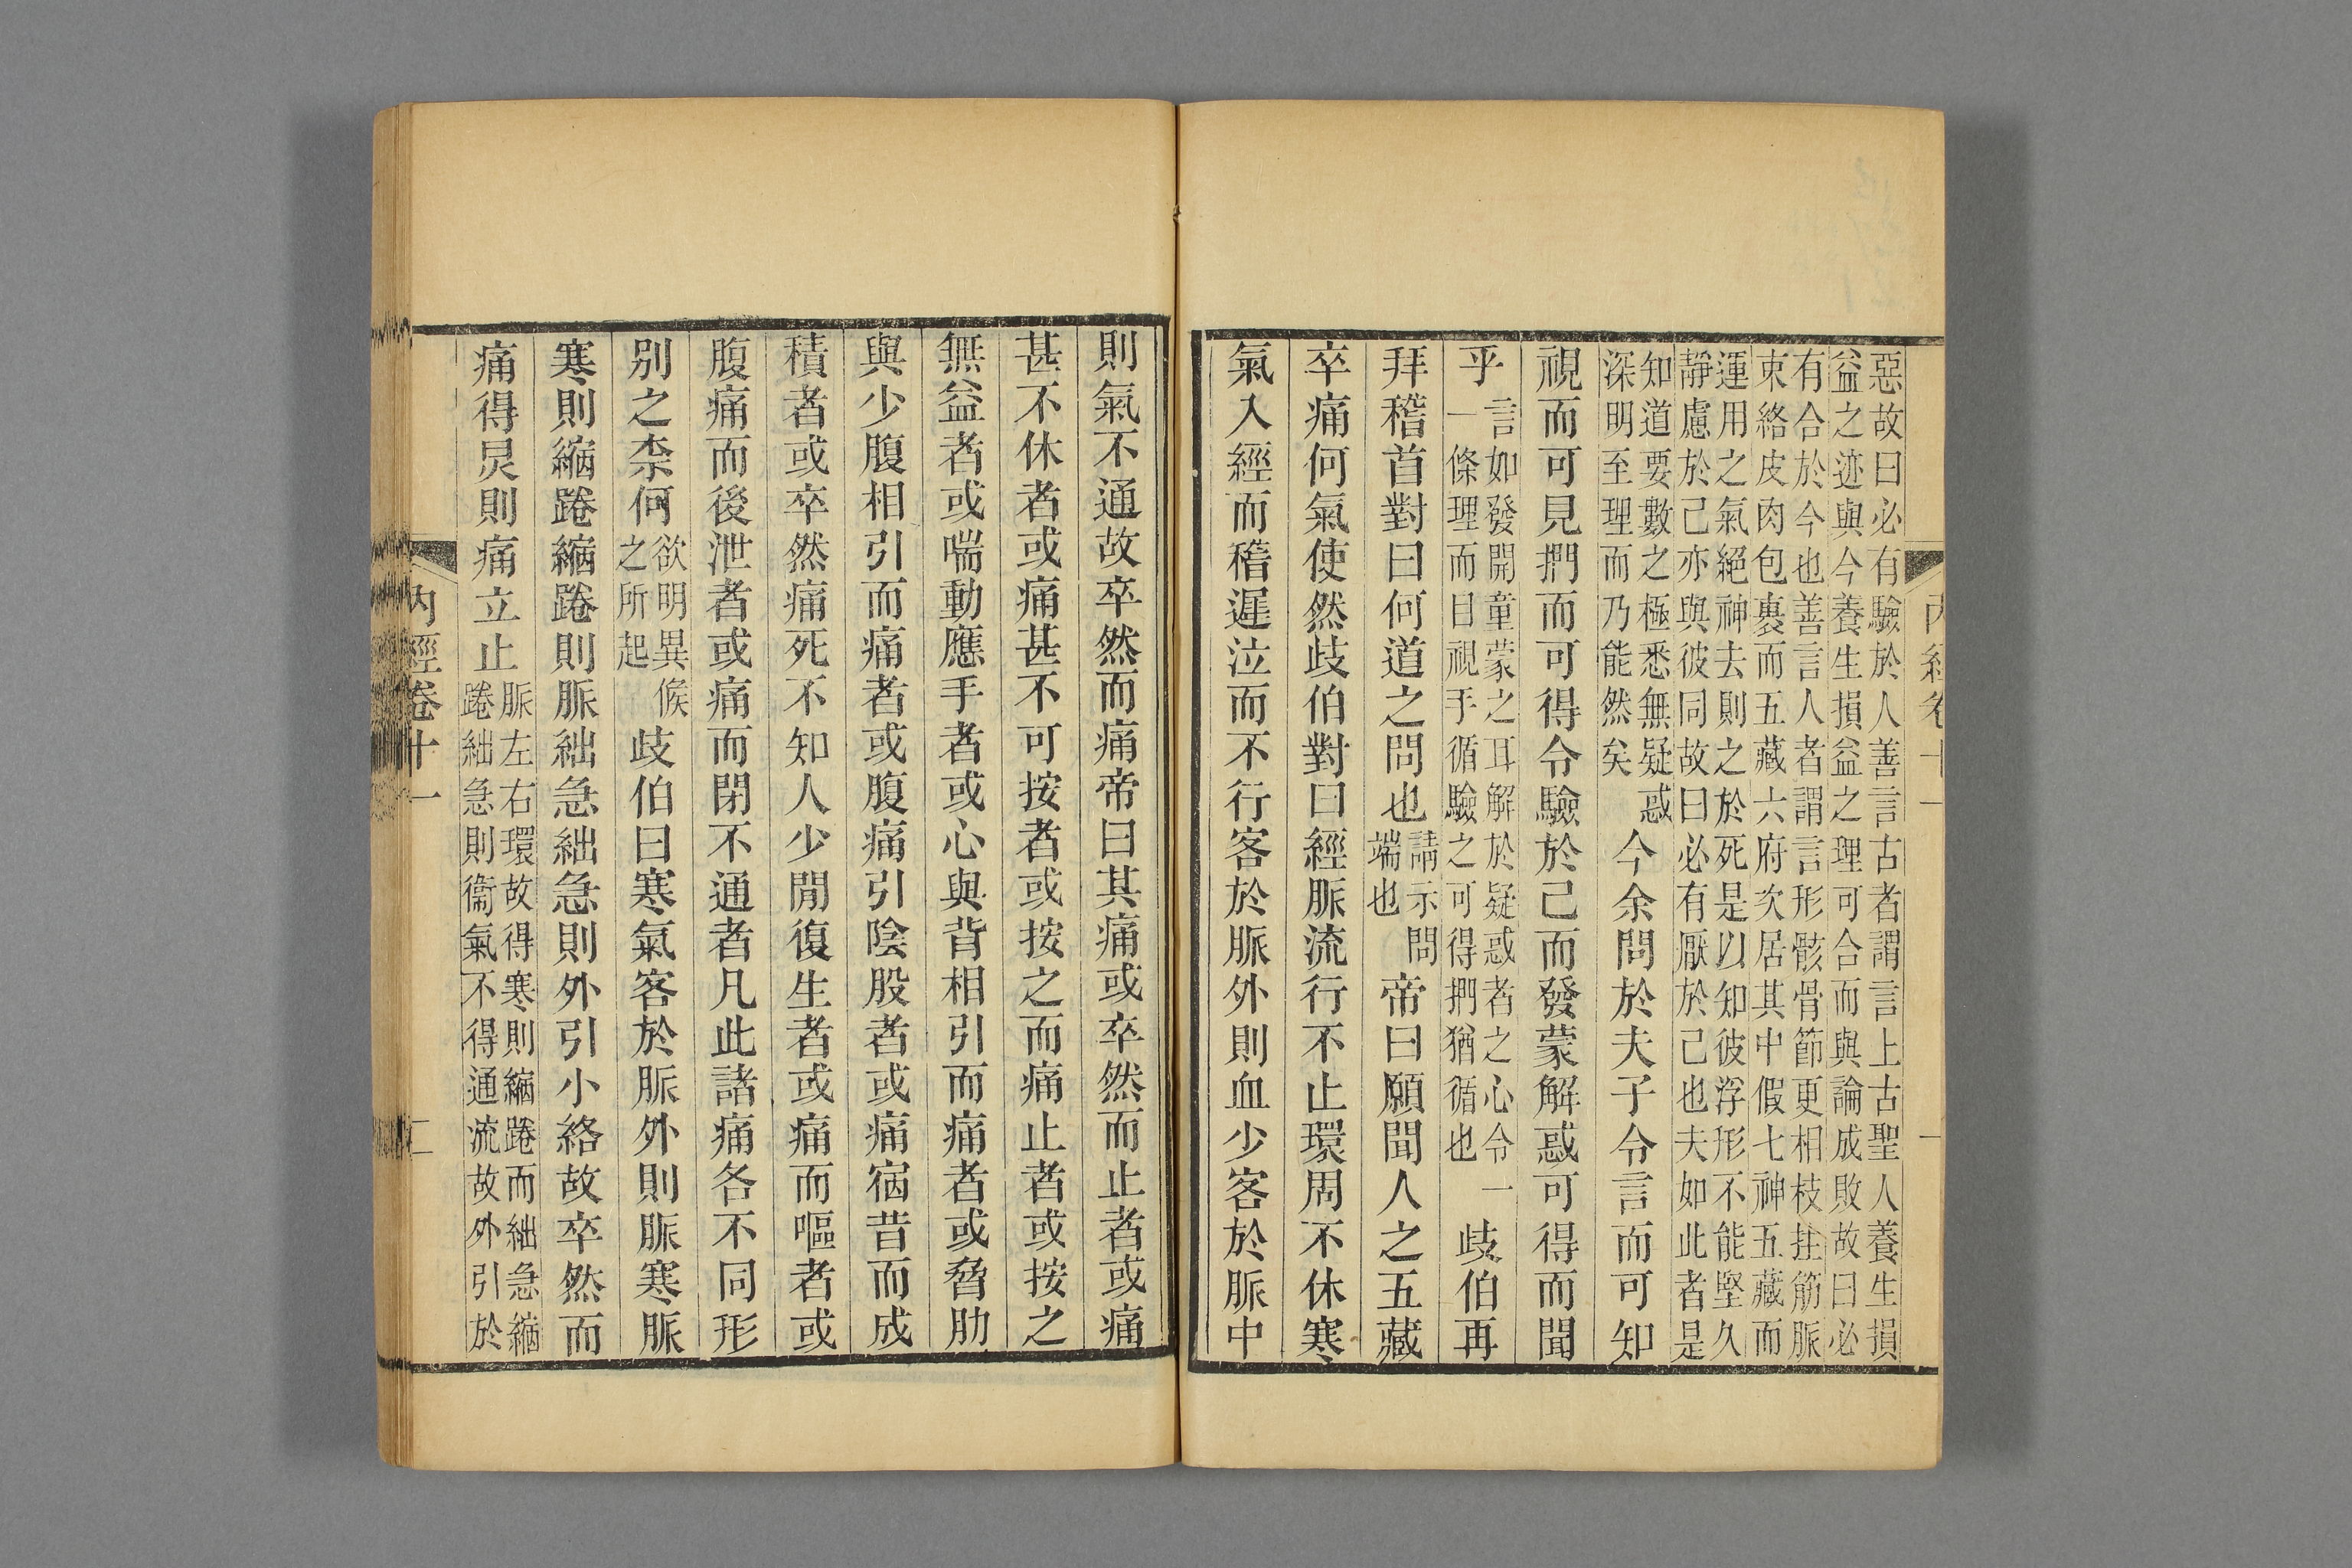 內經卷十一
一
惡故曰必有驗於人善言古者謂言上古聖人養生損
益之迹與今養生損益之理可合而與論成敗故曰必
有合於今也善言人者謂言形骸骨節更相枝拄筋脈
束絡皮肉包裹而五藏六府次居其中假七神五藏而
運用之氣絕神去則之於死是以知彼浮形不能堅久
靜慮於己亦與彼同故曰必有厭於己也夫如此者是
知道要數之極悉無疑惑
深明至理而乃能然矣
今余問於夫子令言而可知
視而可見捫而可得令驗於己而發蒙解惑可得而聞
乎
言如發開童蒙之耳解於疑惑者之心令一
一條理而目視手循驗之可得捫猶循也
歧伯再
拜稽首對曰何道之問也
請示問
端也
帝曰願聞人之五藏
卒痛何氣使然歧伯對曰經脈流行不止環周不休寒
氣入經而稽遲泣而不行客於脈外則血少客於脈中
則氣不通故卒然而痛帝曰其痛或卒然而止者或痛
甚不休者或痛甚不可按者或按之而痛止者或按之
無益者或喘動應手者或心與背相引而痛者或脅肋
與少腹相引而痛者或腹痛引陰股者或痛宿昔而成
積者或卒然痛死不知人少閒復生者或痛而嘔者或
腹痛而後泄者或痛而閉不通者凡此諸痛各不同形
別之柰何
欲明異候
之所起
歧伯曰寒氣客於脈外則脈寒脈
寒則縮踡縮踡則脈絀急絀急則外引小絡故卒然而
痛得炅則痛立止
脈左右環故得寒則縮踡而絀急縮
踡絀急則衞氣不得通流故外引於
內經卷十一
二